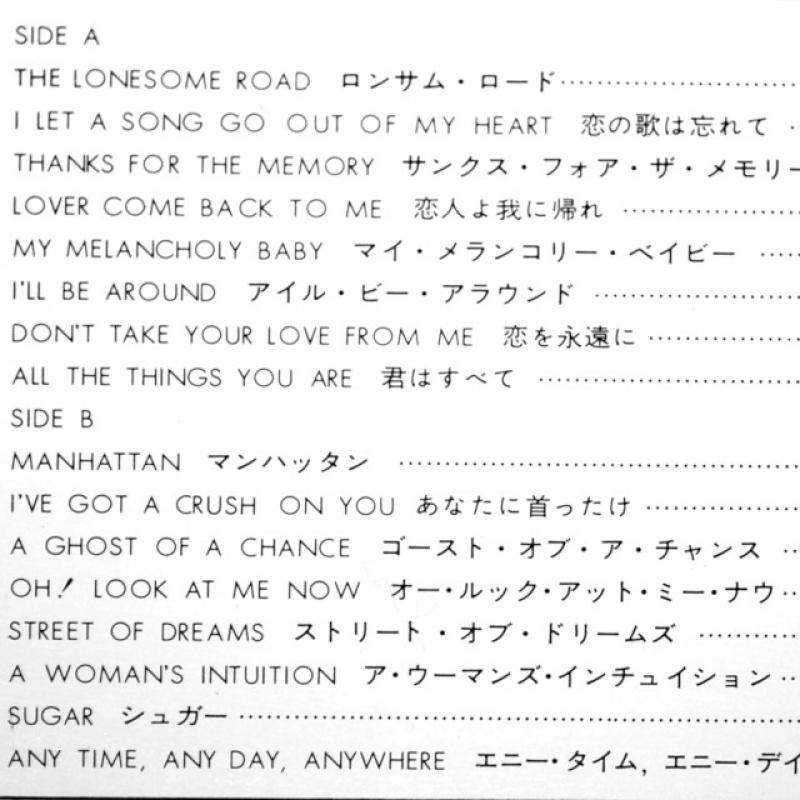 SIDE A
THE LONESOME ROAD ロンサム・ロード
I LET A SONG GO OUT OF MY HEART 恋の歌は忘れて
THANKS FOR THE MEMORY サンクス・フォア・ザ・メモリー
LOVER COME BACK TO ME 恋人よ我に帰れ
MY MELANCHOLY BABY マイ・メランコリー・ベイビー
I'LL BE AROUND アイル・ビー・アラウンド
DON'T TAKE YOUR LOVE FROM ME 恋を永遠に
ALL THE THINGS YOU ARE 君はすべて
SIDE B
MANHATTAN マンハッタン
I'VE GOT A CRUSH ON YOU あなたに首ったけ
A GHOST OF A CHANCE ゴースト・オブ・ア・チャンス
OH! LOOK AT ME NOW オー・ルック・アット・ミー・ナウ
STREET OF DREAMS ストリート・オブ・ドリームズ
A WOMAN'S INTUITION ア・ウーマンズ・インチュイション
SUGAR シュガー
ANY TIME, ANY DAY, ANYWHERE エニー・タイム, エニー・デイ